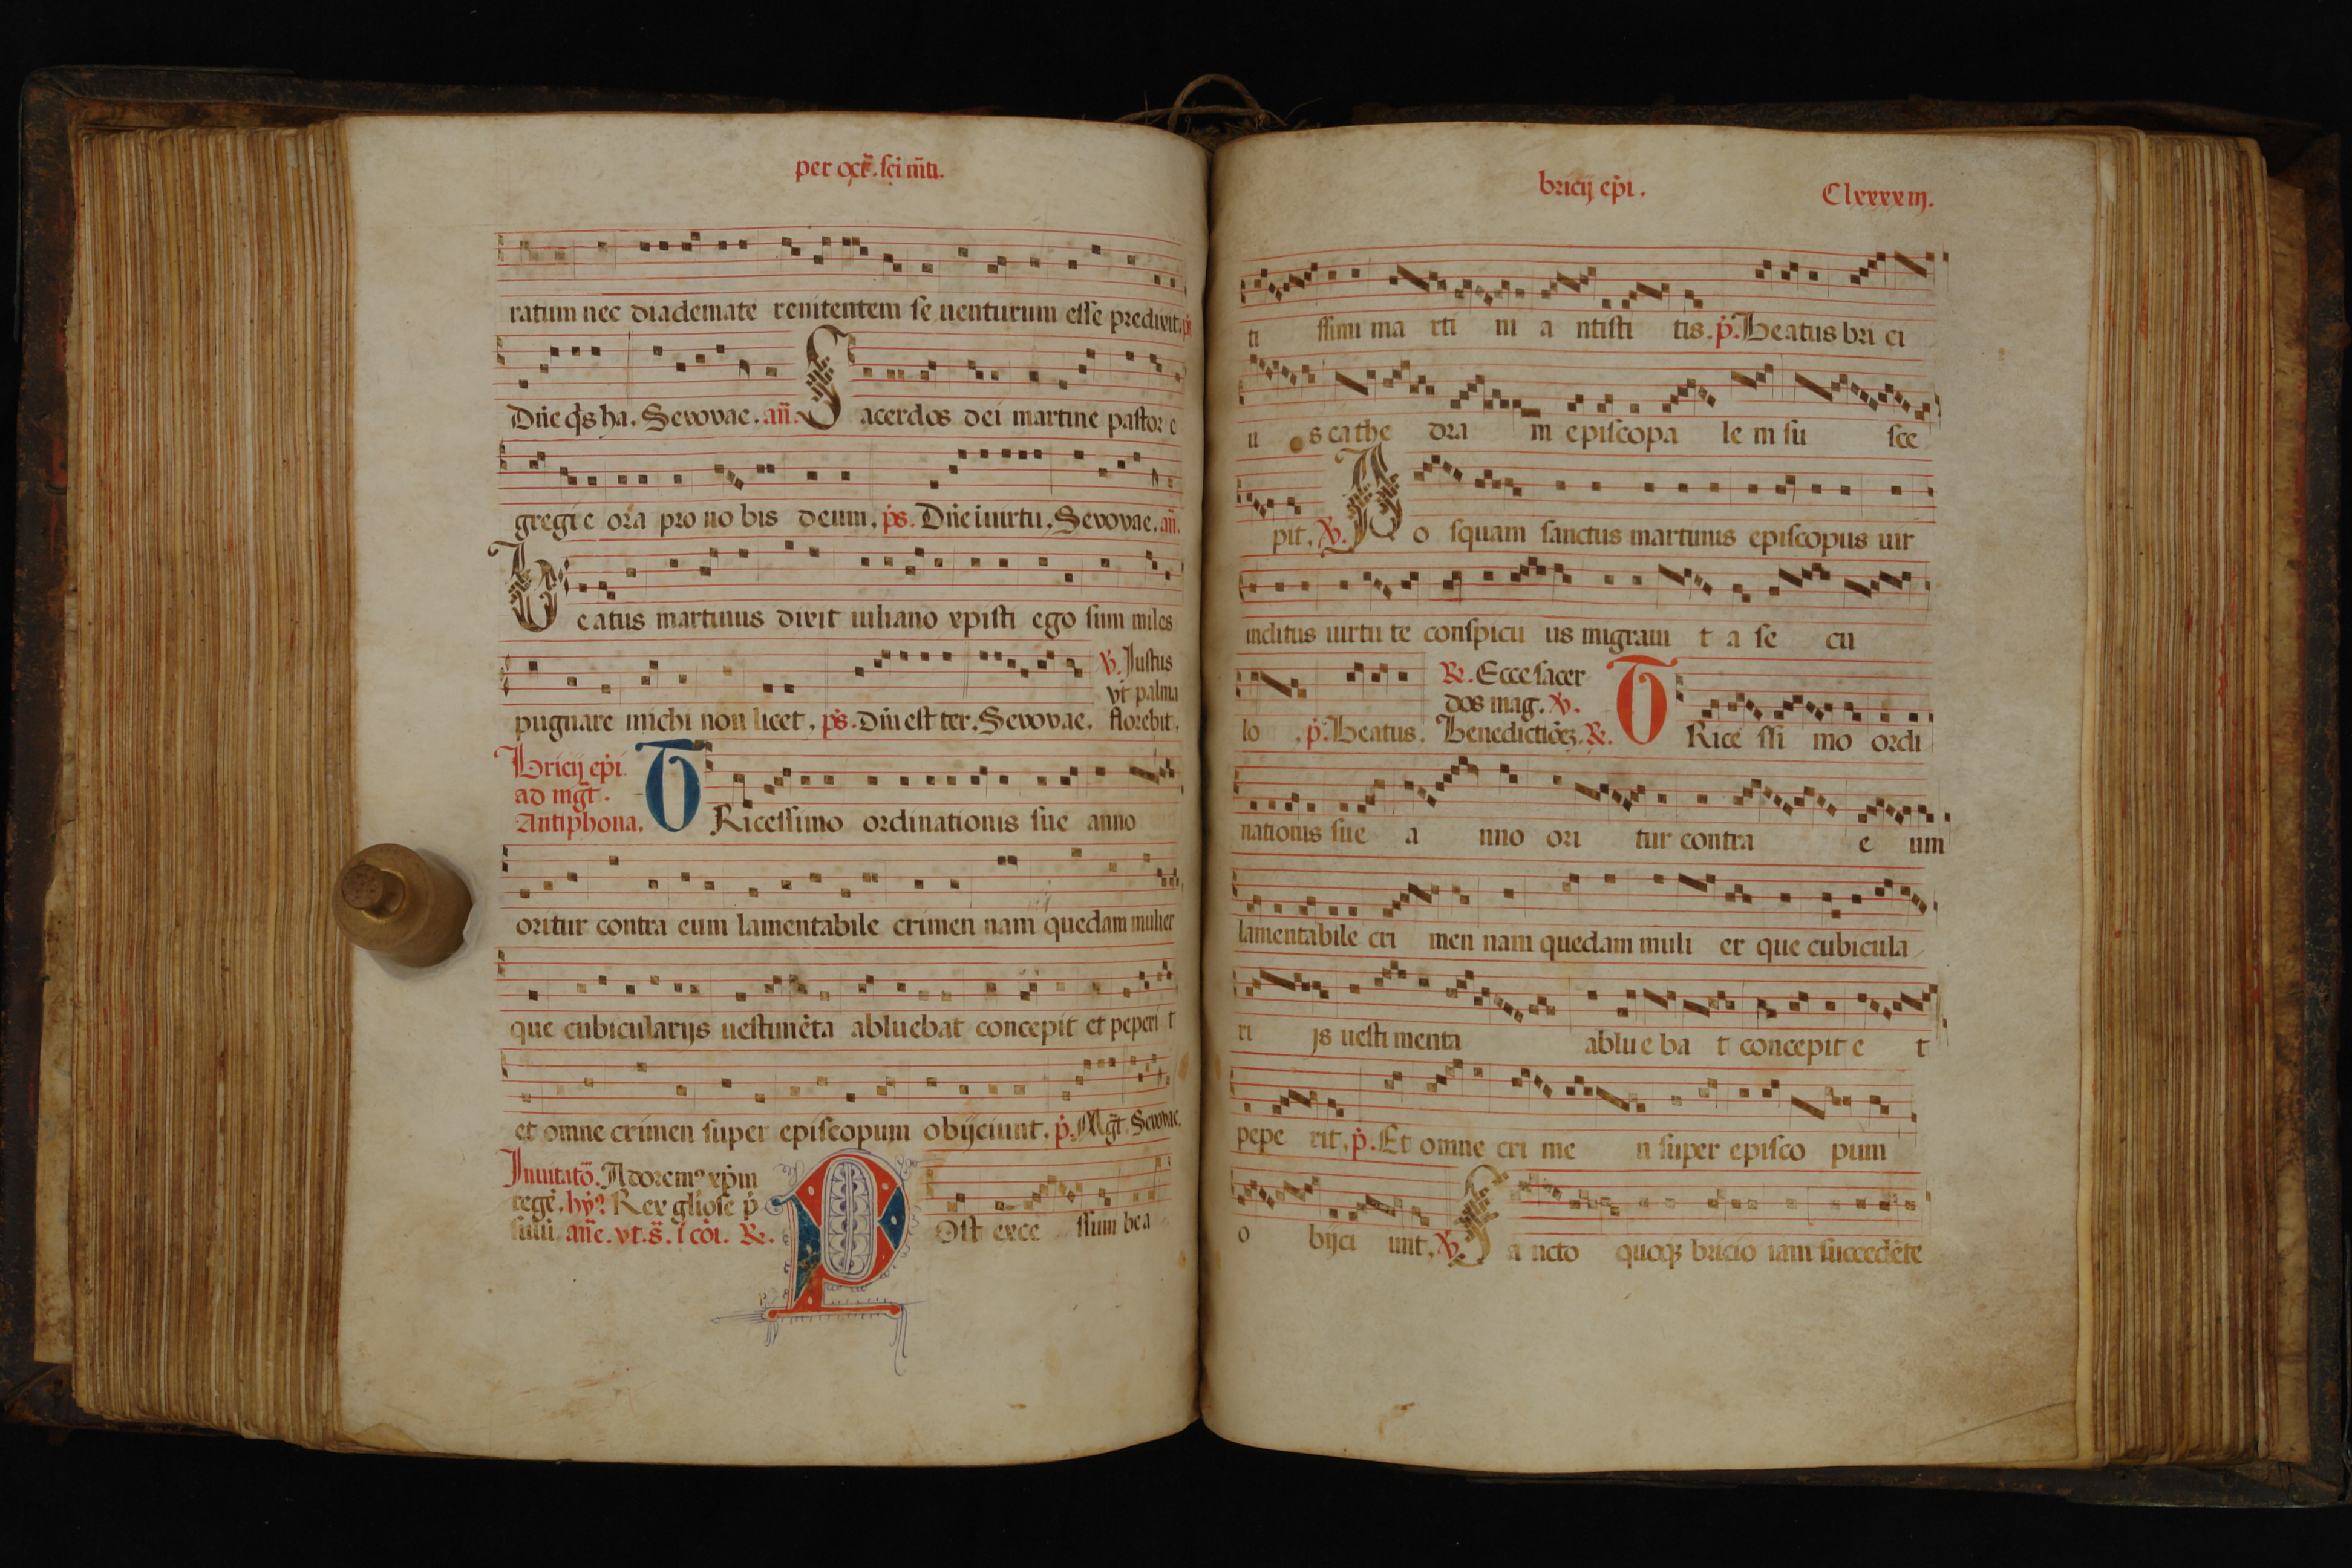 per oct̄. sci m̄ti.
ratum nec diademate renitentem se uenturum esse predixit. p̄s
Dn̄e q̄s ha. Seuouae. an̄. Sacerdos dei martine pastor e
gregie ora pro nobis deum. p̄s. Dn̄e i uirtu. Seuouae. an̄.
Beatus martinus dixit iuliano xpisti ego sum miles
℣. Iustus
vt palma
pugnare michi non licet. p̄s. Dn̄i est ter. Seuouae. florebit.
Bricij ep̄i
ad mḡt.
Antiphona.
TRicessimo ordinationis sue anno
oritur contra eum lamentabile crimen nam quedam mulier
que cubicularijs uestimēta abluebat concepit et peperi t
et omne crimen super episcopum obijciunt. p̄. Mḡt. Seuouae.
Inuitatō. Adorem⁹ xp̄m
regē. hȳ⁹ Rex gliose p̄
sulū. an̄e. vt. s̄. i cōi. ℟.
POst exce ssum bea
bricij ep̄i.
Clxxxxiij.
ti ssimi ma rti ni a ntisti tis. p̄. Beatus bri ci
u s cathe dra m episcopa le m su sce
pit. ℣. Po squam sanctus martinus episcopus uir
inclitus uirtu te conspicu us migraui t a se cu
℟. Ecce sacer
dos mag. ℣.
lo . p̄. Beatus. Benedictiōꝫ. ℟. TRice ssi mo ordi
nationis sue a nno ori tur contra e um
lamentabile cri men nam quedam muli er que cubicula
ri js uesti menta ablue ba t concepit e t
pepe rit. p̄. Et omne cri me n super episco pum
o bijci unt. ℣. Sa ncto quoqꝫ bricio iam succedēte